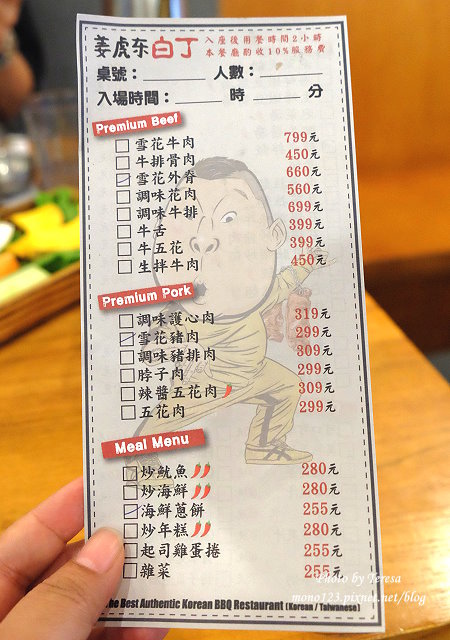 姜虎东白丁
入座後用餐時間2小時
本餐廳酌收10%服務費
桌號： 人數：
入場時間： 時 分
Premium Beef
雪花牛肉 799元
牛排骨肉 450元
雪花外脊 660元
調味花肉 560元
調味牛排 699元
牛舌 399元
牛五花 399元
生拌牛肉 450元
Premium Pork
調味護心肉 319元
雪花豬肉 299元
調味豬排肉 309元
脖子肉 299元
辣醬五花肉 309元
五花肉 299元
Meal Menu
炒魷魚 280元
炒海鮮 280元
海鮮蔥餅 255元
炒年糕 280元
起司雞蛋捲 255元
雜菜 255元
Photo by Teresa
mono123.pixnet.net/blog
The Best Authentic Korean BBQ Restaurant (Korean / Taiwanese)